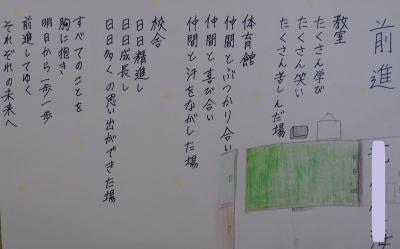 前進
教室
たくさん学び
たくさん笑い
たくさん苦しんだ場
体育館
仲間とぶつかり合い
仲間と喜び合い
仲間と汗をながした場
校舎
日日精進し
日日成長し
日日多くの思い出ができた場
すべてのことを
胸に抱き
明日から一歩一歩
前進してゆく
それぞれの未来へ